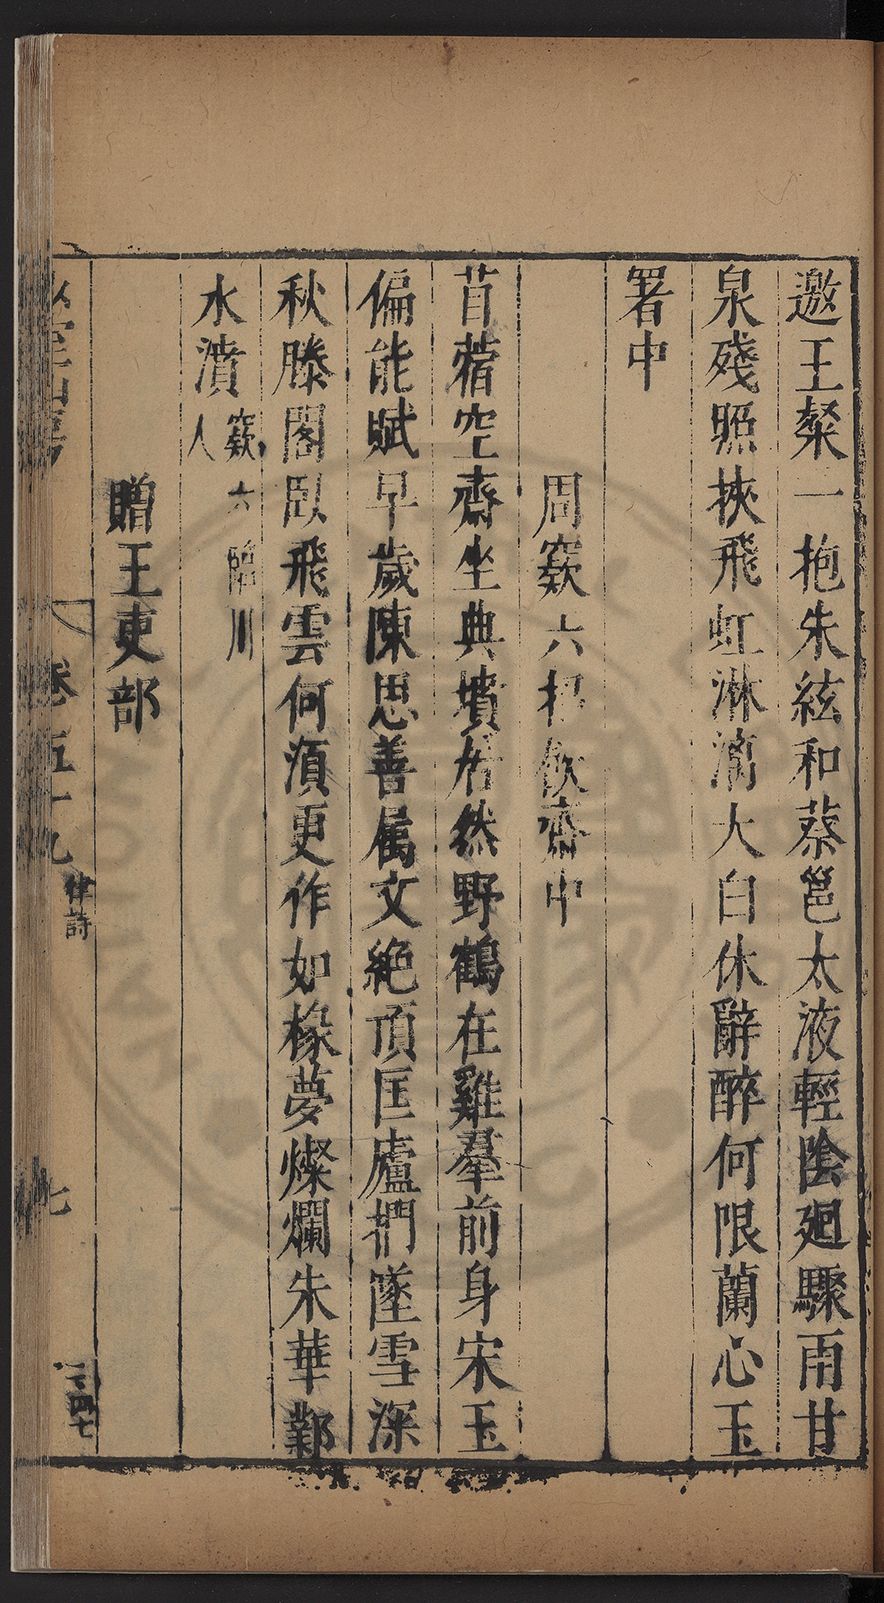 邀王粲一抱朱絃和蔡邕太液輕陰廻驟雨甘
泉殘照挾飛虹淋漓大白休辭醉何限蘭心玉
署中
周窽六招飲齋中
苜蓿空齋坐典墳居然野鶴在雞羣前身宋玉
偏能賦早歲陳思善属文絶頂匡廬捫墜雪深
秋滕閣臥飛雲何須更作如椽夢燦爛朱華鄴
水濆
窽六臨川
人
贈王吏部
卷五十九
律詩
七
一二四七